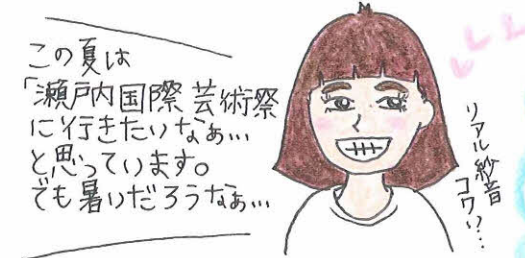 この夏は
「瀬戸内国際芸術祭
に行きたいなぁ…
と思っています。
でも暑いだろうなぁ…
リアル紗音
コワい?…